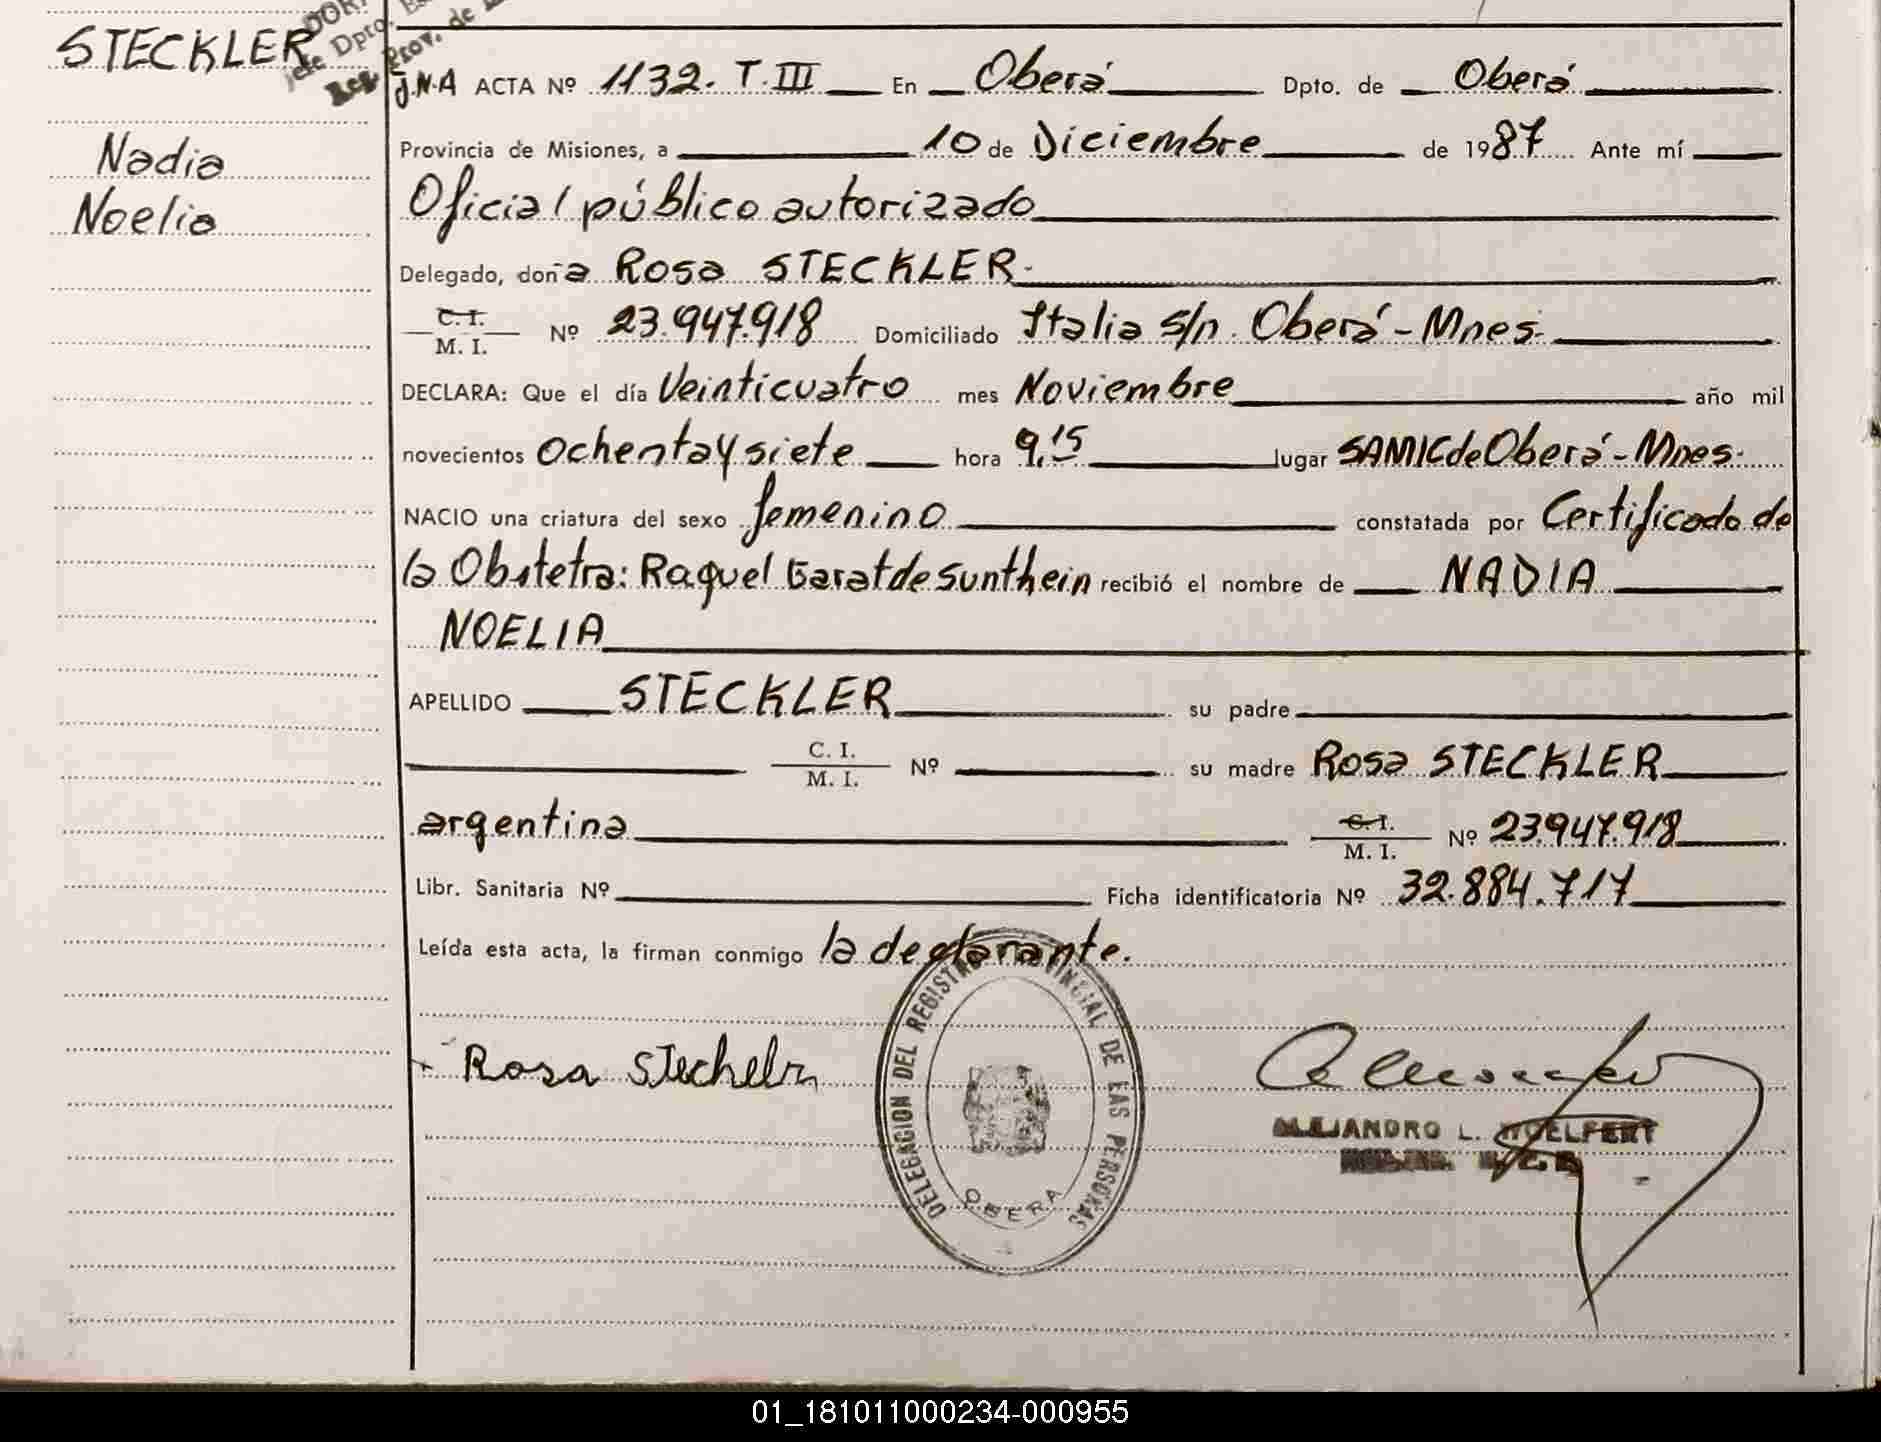 STECKLER
Nadia
Noelia
Jefe Dpto.
Reg. Prov. de
J.N.A ACTA Nº 1132. T. III En Oberá Dpto. de Oberá
Provincia de Misiones, a 10 de Diciembre de 1987 Ante mí
Oficial público autorizado
Delegado, doña Rosa STECKLER
C. I. / M. I. Nº 23.947.918 Domiciliado Italia s/n. Oberá - Mnes.
DECLARA: Que el día Veinticuatro mes Noviembre año mil
novecientos ochenta y siete hora 9,15 lugar SAMIC de Oberá - Mnes.
NACIO una criatura del sexo femenino constatada por Certificado de
la Obstetra: Raquel Garat de Sunthein recibió el nombre de NADIA
NOELIA
APELLIDO STECKLER su padre
C. I. / M. I. Nº su madre Rosa STECKLER
argentina C. I. / M. I. Nº 23.947.918
Libr. Sanitaria Nº Ficha identificatoria Nº 32.884.717
Leída esta acta, la firman conmigo la declarante.
Rosa Stecheln
DELEGACION DEL REGISTRO PROVINCIAL DE LAS PERSONAS
OBERA
ALEJANDRO L. WOELFERT
01_181011000234-000955